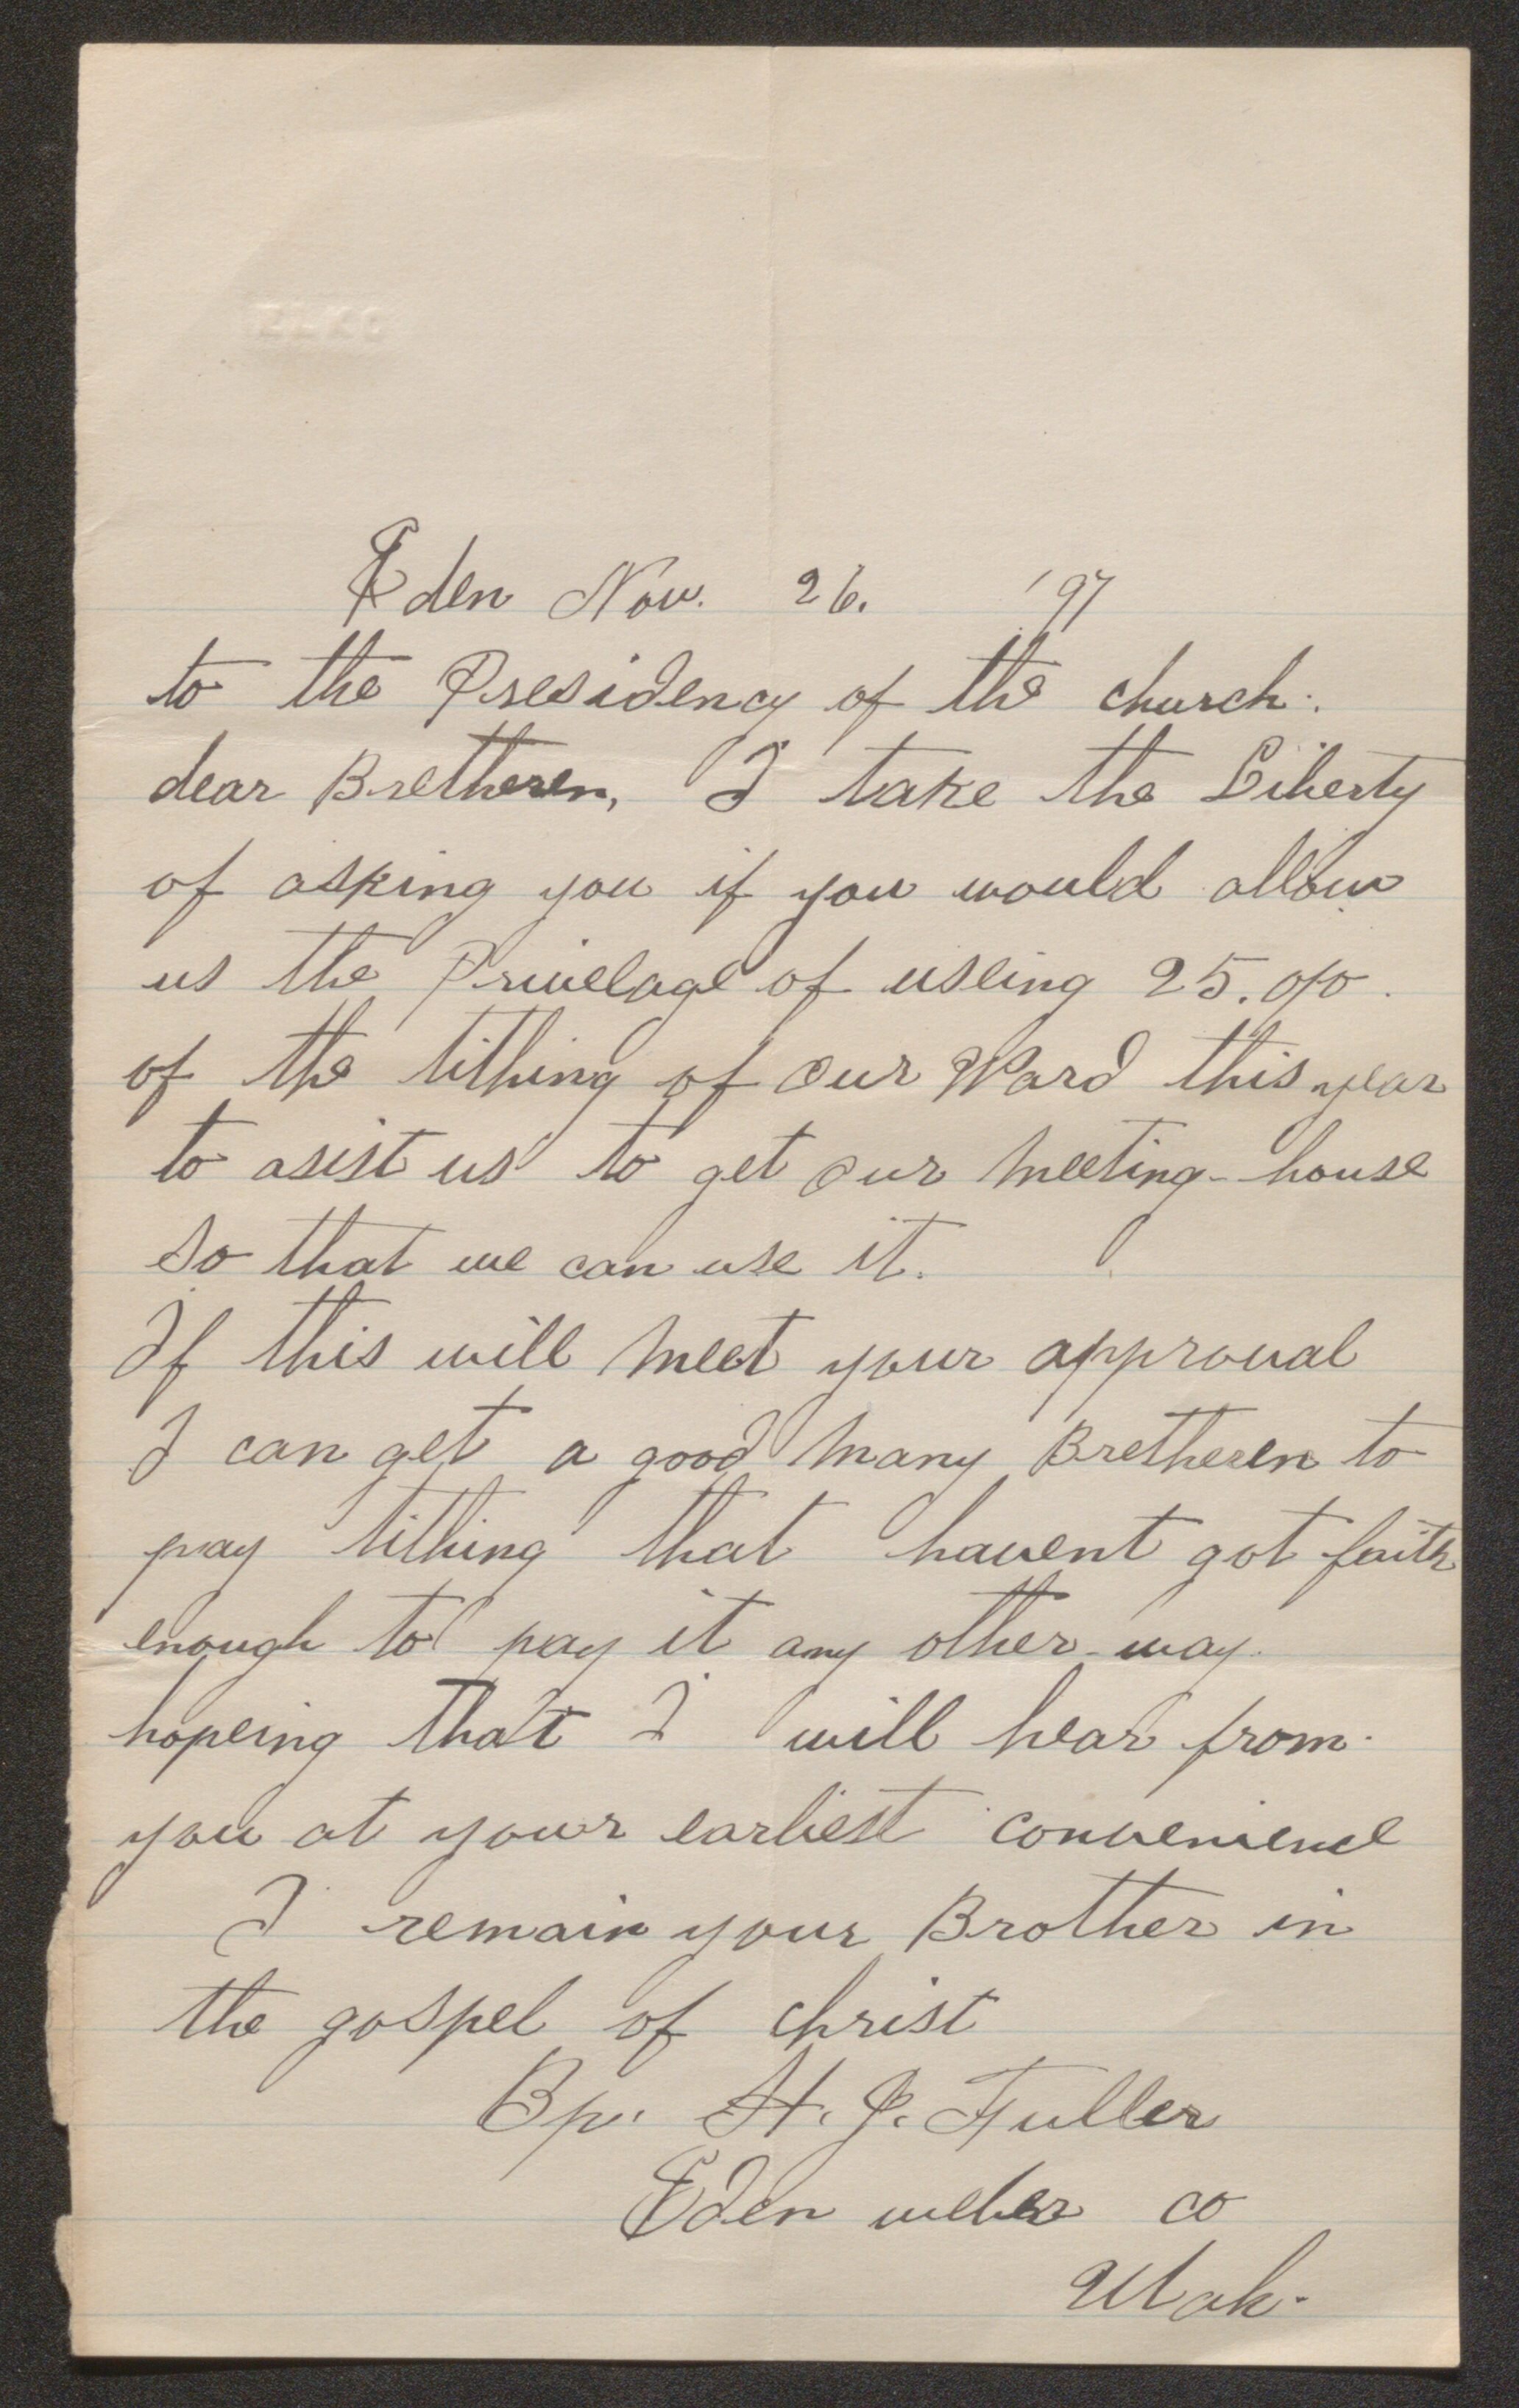 Eden Nov. 26. '97
to the Presidency of the church.
dear Bretheren, I take the Liberty
of asking you if you would allow
us the Privelage of useing 25. o/o.
of the tithing of our Ward this year
to asist us to get our meeting-house
so that we can use it.
If this will meet your approval
I can get a good many Bretheren to
pay tithing that havent got faith
enough to pay it any other-way.
hopeing that I will hear from
you at your earliest convenience
I remain your Brother in
the gospel of christ
Bp. H. J. Fuller
Eden weber co
Utah.